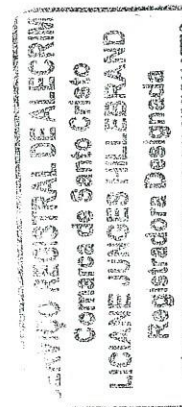 REGISTRAL DE ALECRIM
Comarca de Santo Cristo
JUNGES HILLEBRAND
Registradora Designada